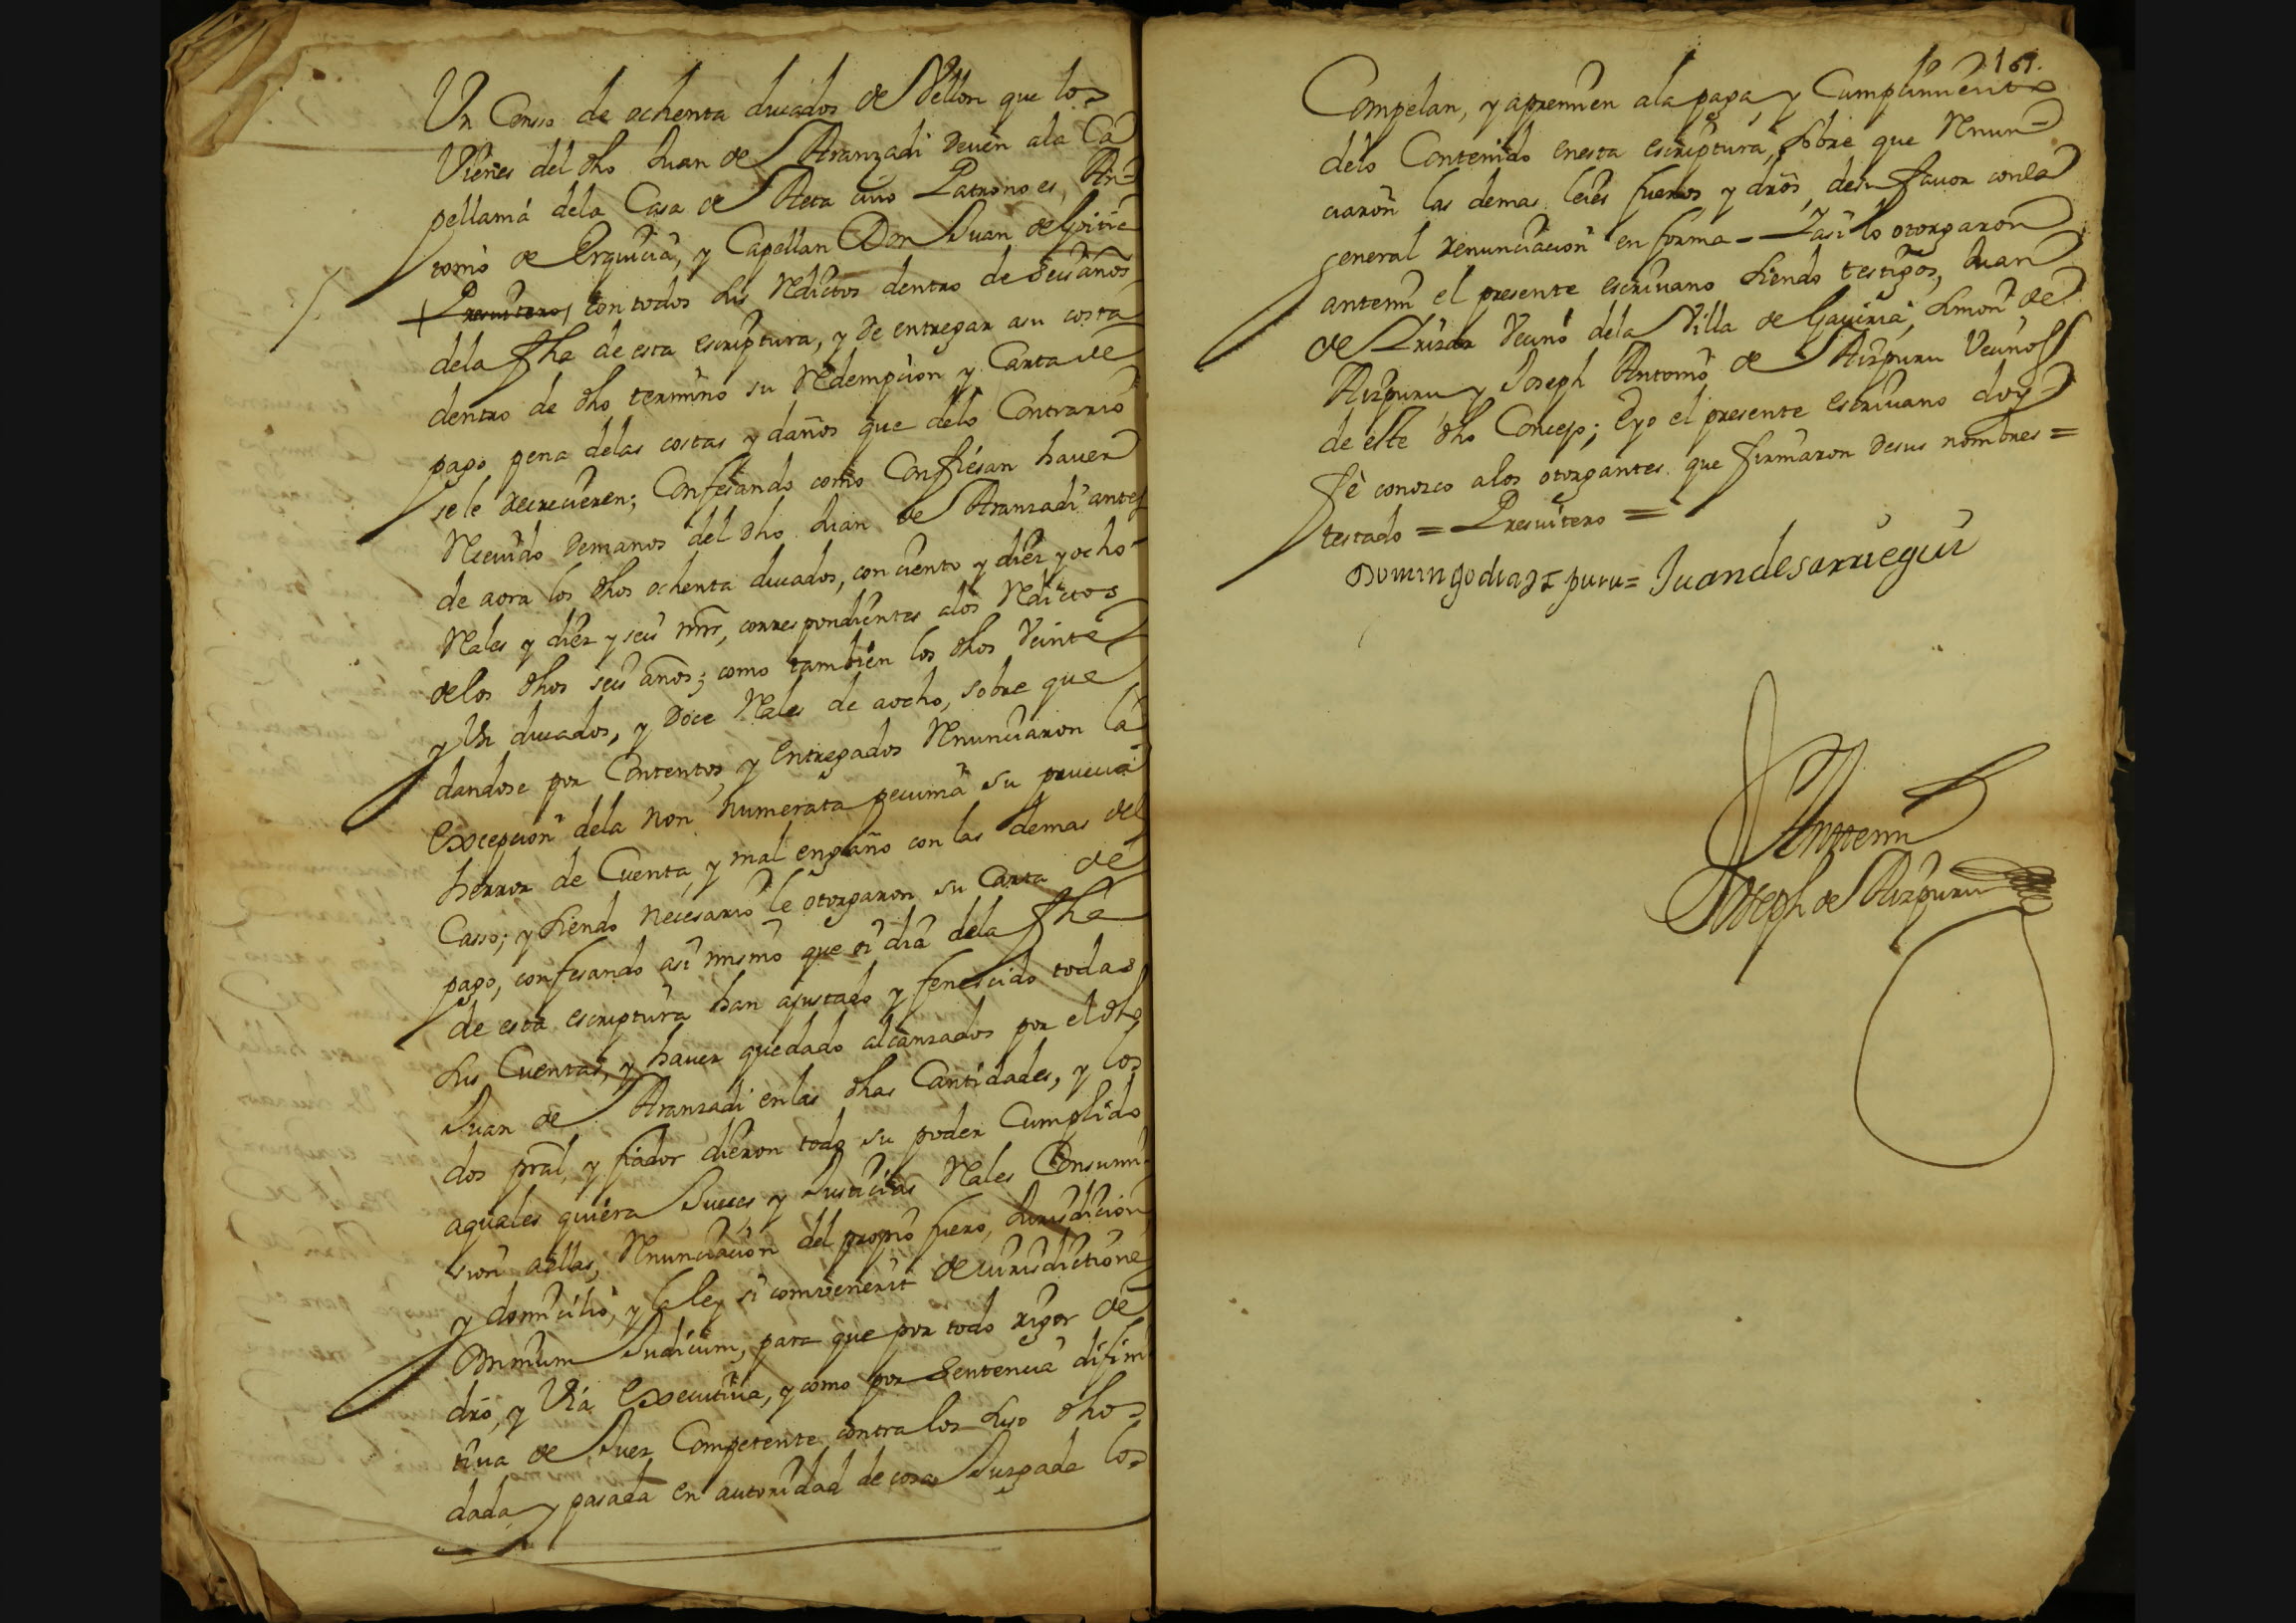 Un Censo de ochenta ducados de Vellon que los
Vienes del dho Juan de Aranzadi deven ala Ca
pellania dela Casa de Aeta cuio Patrono es, An-
tonio de Erquicia, y Capellan Don Juan de Goitia
Presuitero, con todos sus Reditos dentro de seis años
dela fha de esta escriptura, y de entregar asu costa
dentro de dho termino su Redempcion y Carta de
pago pena delas costas y daños que delo Contrario
sele recrecieren; Confesando como Confiesan haver
Recivido de manos del dho Juan de Aranzadi antes
de aora los dhos ochenta ducados, con ciento y diez y ocho
Reales y diez y seis mrs, correspondientes alos Reditos
delos dhos seis años; como tambien los dhos Veinte
y Un ducados, y Doce Reales de aocho, sobre que
dandose por Contentos, y entregados Renunciaron la
Excepcion dela non numerata pecunia su prueva
herror de Cuenta, y mal engaño con las demas del
Casso; y siendo necesario le otorgaron su Carta de
pago, confesando asi mismo que oi dia dela fha
de esta escriptura han ajustado y fenescido todas
sus Cuentas, y haver quedado alcanzados por el dho
Juan de Aranzadi enlas dhas Cantidades, y los
dos pral, y fiador dieron todo su poder Cumplido
aquales quiera Jueces y Justicias Reales Consumi-
sion aellas, Renunciacion del propio fuero, Jurisdicion
y domicilio, y la ley si convenerit de iurisdictione
omnium Judicum, para que por todo rigor de
dro, y Via Executiva, y como por Sentencia difini
tiva de Juez Competente contra los suso dhos
dada y pasada en autoridad de cosa Juzgada los
161.
Compelan, y apremien ala paga, y Cumplimiento
delo Contenido enesta escriptura, sobre que Renun-
ciaron las demas leies fueros y dros, desu favor conla
general renunciacion en forma - Y asi lo otorgaron
antemi el presente escrivano siendo testigos, Juan
de Vecino dela Villa de Gaviria, Simon de
Aizpuru y Joseph Antonio de Aizpuru Vecinos
de este dho Concejo; Eyo el presente escrivano doy
fe conozco alos otorgantes que firmaron desus nombres =
testado = Presuitero =
Domingo = Juan de sarriegui
Antemi
Joseph de Aizpuru